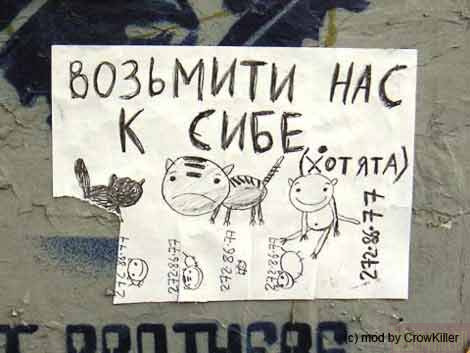 ВОЗЬМИТИ НАС
К СИБЕ
(ХОТЯТА)
272-86-77
272-86-77
272-86-77
272-86-77
272-86-77
T BROTHERS
(c) mod by CrowKiller